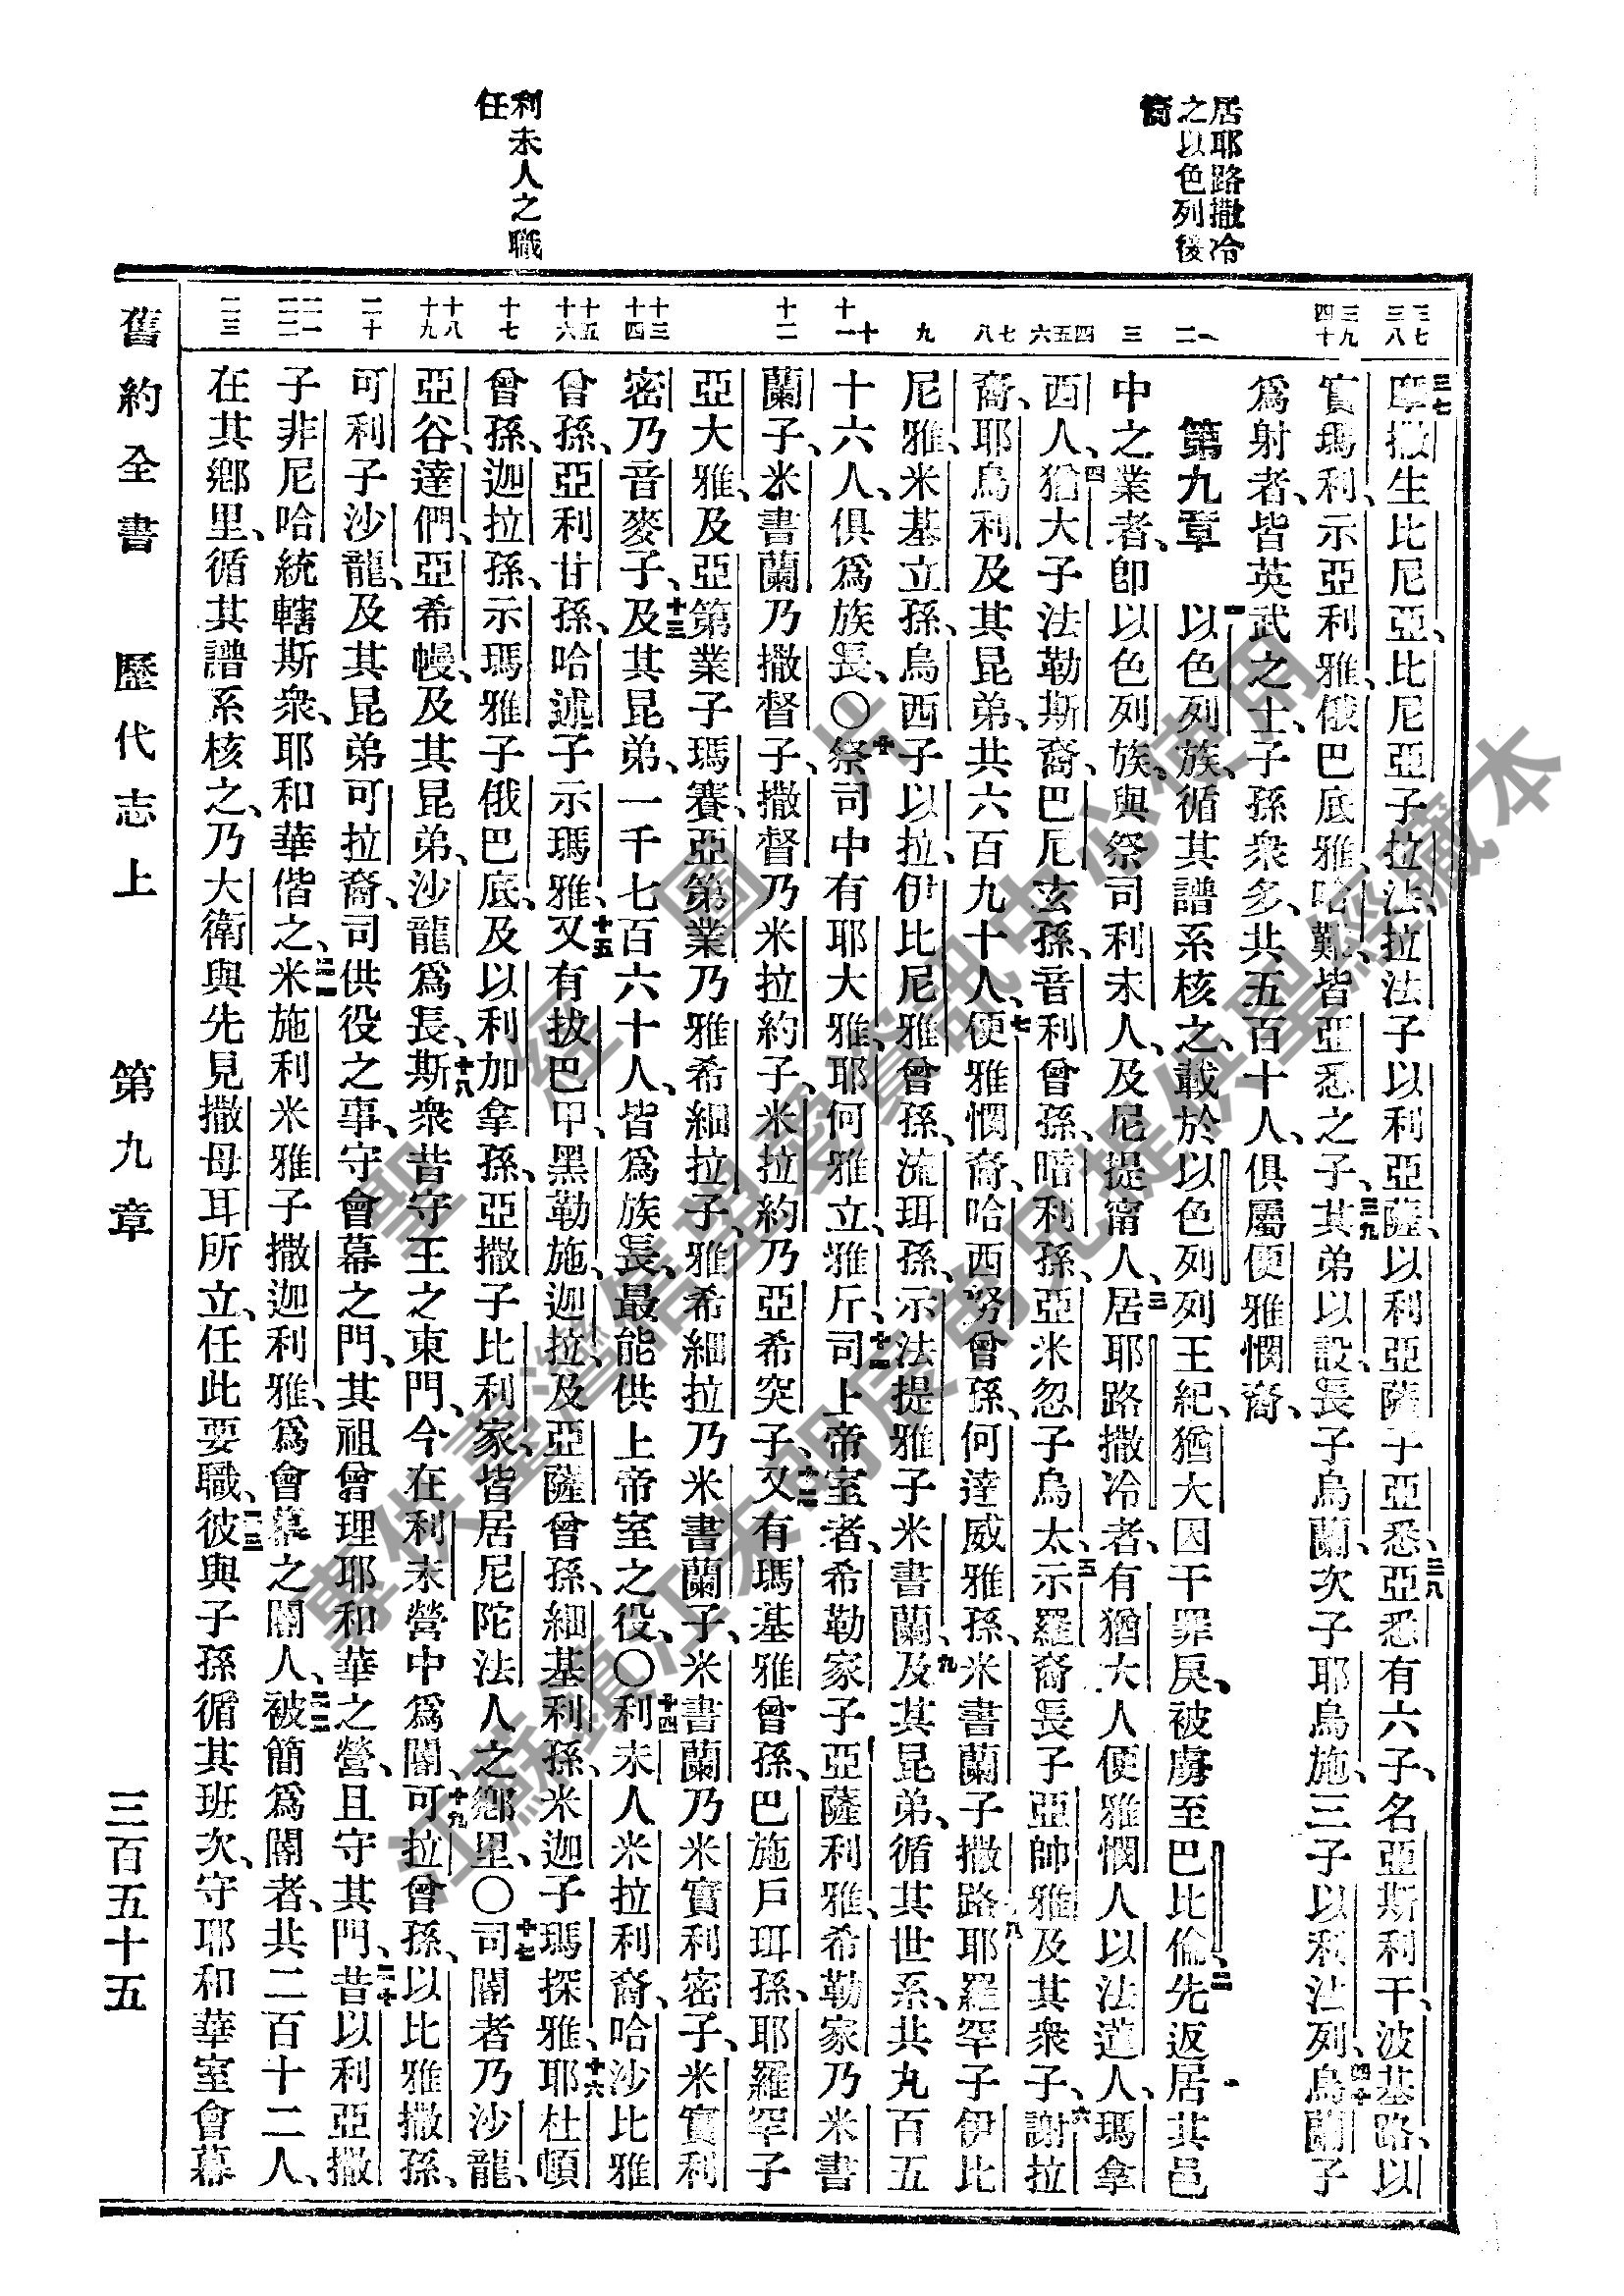 居耶路撒冷
之以色列後
裔
利未人之職
任
三七 三八
三九 四十
一 二
三
四 五 六
七 八
九
十 十一
十二
十三 十四
十五 十六
十七
十八 十九
二十
二一 二二
二三
三七摩撒生比尼亞、比尼亞子拉法、拉法子以利亞薩、以利亞薩子亞悉、三八亞悉有六子、名亞斯利干、波基路、以
實瑪利、示亞利雅、俄巴底雅、哈難、皆亞悉之子、三九其弟以設、長子烏蘭、次子耶烏施、三子以利法列、四十烏蘭子
爲射者、皆英武之士、子孫衆多、共五百十人、俱屬便雅憫裔、
第九章 一以色列族、循其譜系核之、載於以色列列王紀、猶大因干罪戾、被虜至巴比倫、二先返居其邑
中之業者、卽以色列族、與祭司利未人、及尼提甯人、三居耶路撒冷者、有猶大人便雅憫人以法蓮人、瑪拿
西人、四猶大子法勒斯裔、巴尼玄孫、音利曾孫、暗利孫、亞米忽子烏太、五示羅裔長子亞帥雅及其衆子、六謝拉
裔、耶烏利及其昆弟、共六百九十人、七便雅憫裔、哈西努曾孫、何達威雅孫、米書蘭子撒路、八耶羅罕子伊比
尼雅、米基立孫、烏西子以拉、伊比尼雅曾孫、流珥孫、示法提雅子米書蘭、九及其昆弟、循其世系、共九百五
十六人、俱爲族長、〇十祭司中有耶大雅、耶何雅立、雅斤、十一司上帝室者、希勒家子亞薩利雅、希勒家乃米書
蘭子、米書蘭乃撒督子、撒督乃米拉約子、米拉約乃亞希突子、十二又有瑪基雅曾孫、巴施戶珥孫、耶羅罕子
亞大雅、及亞第業子瑪賽、亞第業乃雅希細拉子、雅希細拉乃米書蘭子、米書蘭乃米實利密子、米實利
密乃音麥子、十三及其昆弟、一千七百六十人、皆爲族長、最能供上帝室之役、〇十四利未人米拉利裔、哈沙比雅
曾孫、亞利甘孫、哈述子示瑪雅、十五又有拔巴甲、黑勒施、迦拉、及亞薩曾孫、細基利孫、米迦子瑪探雅、十六耶杜頓
曾孫、迦拉孫、示瑪雅子俄巴底、及以利加拿孫、亞撒子比利家、皆居尼陀法人之鄉里、〇十七司閽者乃沙龍、
亞谷、達們、亞希幔、及其昆弟、沙龍爲長、十八斯衆昔守王之東門、今在利未營中爲閽、十九可拉曾孫、以比雅撒孫、
可利子沙龍、及其昆弟可拉裔、司供役之事、守會幕之門、其祖曾理耶和華之營、且守其門、二十昔以利亞撒
子非尼哈統轄斯衆、耶和華偕之、二一米施利米雅子撒迦利雅、爲會幕之閽人、二二被簡爲閽者、共二百十二人、
在其鄉里、循其譜系核之、乃大衛與先見撒母耳所立、任此要職、二三彼與子孫循其班次、守耶和華室會幕
舊約全書 歷代志上 第九章 三百五十五
聖經圖片
專供臺灣信望愛資訊中心使用
江蘇鎮江朱明辰弟兄提供聖經藏本